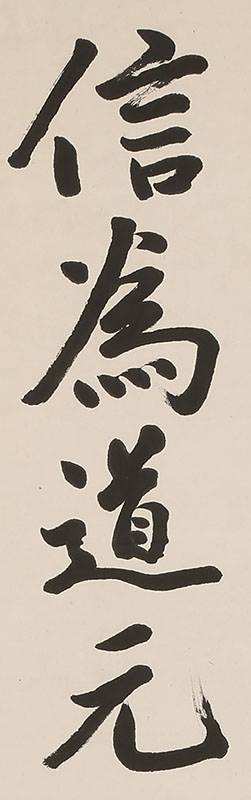 信為道元